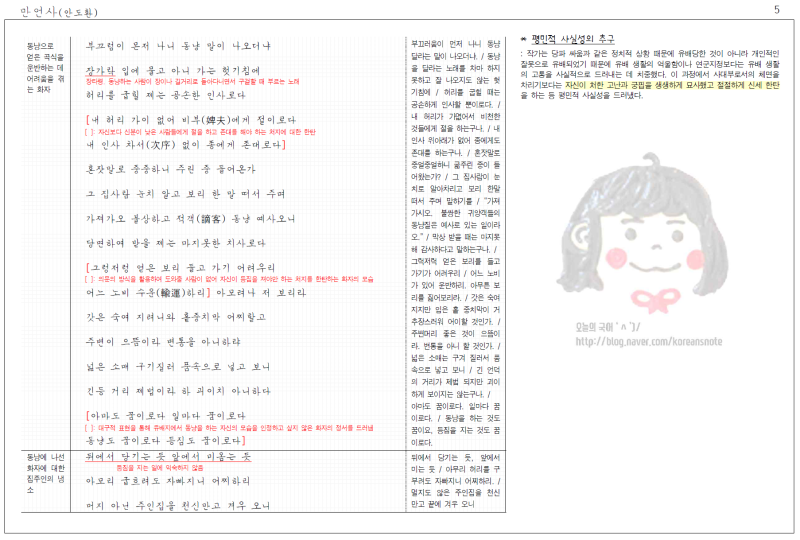 만언사(안도환)
5
동냥으로
얻은 곡식을
운반하는 데
어려움을 겪
는 화자
부끄럼이 몬저 나니 동냥 말이 나오더냐
장가락 입에 물고 아니 가는 헛기침에
장타령. 동냥하는 사람이 장이나 길거리로 돌아다니면서 구걸할 때 부르는 노래
허리를 굽힐 제는 공손한 인사로다
[내 허리 가이 없어 비부(婢夫)에게 절이로다
[ ]: 자신보다 신분이 낮은 사람들에게 절을 하고 존대를 해야 하는 처지에 대한 한탄
내 인사 차서(次序) 없이 종에게 존대로다]
혼잣말로 중중하니 주린 중 들어온가
그 집사람 눈치 알고 보리 한 말 떠서 주며
가져가오 불상하고 적객(謫客) 동냥 예사오니
당면하여 받을 제는 마지못한 치사로다
[그렁저렁 얻은 보리 들고 가기 어려우리
[ ]: 의문의 방식을 활용하여 도와줄 사람이 없어 자신이 등짐을 져야만 하는 처지를 한탄하는 화자의 모습
어느 노비 수운(輸運)하리] 아모려나 져 보리라
갓은 숙여 지려니와 홑중치막 어찌할고
주변이 으뜸이라 변통을 아니하랴
넓은 소매 구기질러 품속으로 넣고 보니
긴등 거리 제법이라 하 괴이치 아니하다
[아마도 꿈이로다 일마다 꿈이로다
[ ]: 대구적 표현을 통해 유배지에서 동냥을 하는 자신의 모습을 인정하고 싶지 않은 화자의 정서를 드러냄
동냥도 꿈이로다 등짐도 꿈이로다]
부끄러움이 먼저 나니 동냥
달라는 말이 나오더냐. / 동냥
을 달라는 노래를 차마 하지
못하고 잘 나오지도 않는 헛
기침에 / 허리를 굽힐 때는
공손하게 인사할 뿐이로다. /
내 허리가 가엾어서 비천한
것들에게 절을 하는구나. / 내
인사 위아래가 없어 종에게도
존대를 하는구나. / 혼잣말로
중얼중얼하니 굶주린 중이 들
어왔는가? / 그 집사람이 눈
치로 알아차리고 보리 한말
떠서 주며 말하기를 / "가져
가시오. 불쌍한 귀양객들의
동냥질은 예사로 있는 일이라
오." / 막상 받을 때는 마지못
해 감사하다고 말하는구나. /
그럭저럭 얻은 보리를 들고
가기가 어려우리 / 어느 노비
가 있어 운반하리. 아무튼 보
리를 짊어보리라. / 갓은 숙여
지지만 입은 홑 중치막이 거
추장스러워 어이할 것인가. /
주변머리 좋은 것이 으뜸이
라. 변통을 아니 할 것인가. /
넓은 소매는 구겨 질러서 품
속으로 넣고 보니 / 긴 언덕
의 거리가 제법 되지만 괴이
하게 보이지는 않는구나. /
아마도 꿈이로다. 일마다 꿈
이로다. / 동냥을 하는 것도
꿈이요, 등짐을 지는 것도 꿈
이로다.
동냥에 나선
화자에 대한
집주인의 냉
소
뒤에서 당기는 듯 앞에서 미옵는 듯
등짐을 지는 일에 익숙하지 않음
아모리 굽흐려도 자빠지니 어찌하리
머지 아닌 주인집을 천신만고 겨우 오니
뒤에서 당기는 듯, 앞에서
미는 듯 / 아무리 허리를 구
부려도 자빠지니 어찌하리. /
멀지도 않은 주인집을 천신
만고 끝에 겨우 오니
* 평민적 사실성의 추구
: 작가는 당파 싸움과 같은 정치적 상황 때문에 유배당한 것이 아니라 개인적인
잘못으로 유배되었기 때문에 유배 생활의 억울함이나 연군지정보다는 유배 생활
의 고통을 사실적으로 드러내는 데 치중했다. 이 과정에서 사대부로서의 체면을
차리기보다는 자신이 처한 고난과 궁핍을 생생하게 묘사했고 절절하게 신세 한탄
을 하는 등 평민적 사실성을 드러냈다.
오늘의 국어 ' ^ ')/
http://blog.naver.com/koreansnote